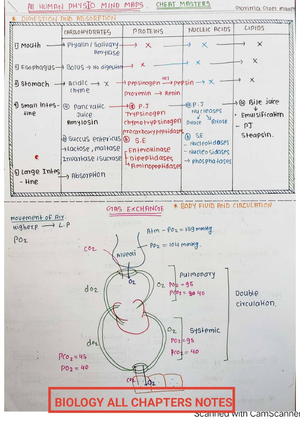 All HUMAN PHYSIO MIND MAPS. CHEAT MASTERS
* DIGESTION AND ABSORPTION
CARBOHYDRATES PROTEINS NUCLEIC ACIDS LIPIDS
1) Mouth → Ptyalin / Salivary Amylase → X → X → X
2) Esophagus → Bolus → No digestion → X → X → X
3) Stomach → Acidic chyme → X
Pepsinogen HCl → Pepsin → X → X
Prorennin → Renin
4) Small Intestine
Ⓐ Pancreatic Juice
Amylopsin
Ⓑ Succus entericus
Lactase, maltase
Invertase isucrase
Ⓐ P.J
Trypsinogen
Chymotrypsinogen
Procarboxypeptidases
Ⓑ S.E
Enterokinase
Dipeptidases
Aminopeptidases
Ⓐ P.J
Nucleases
Ⓑ SE
Nucleotidases
Nucleosidases
→ phosphatases
Ⓐ Bile juice
Emulsification
- PJ
Steapsin.
5) Large Intestine → Absorption
GAS EXCHANGE * BODY FLUID AND CIRCULATION
Movement of Air
High p → L.P
PO₂
Atm - PO₂ = 159 mmHg
PO₂ = 104 mmHg.
Alveoli
CO₂
O₂
dO₂ O₂
Pulmonary
PO₂ = 95
PCO₂ = 40
Double circulation.
dO₂ O₂
Systemic
PO₂ = 95
PCO₂ = 40
PCO₂ = 45
PO₂ = 40
CO₂ O₂
BIOLOGY ALL CHAPTERS NOTES
Scanned with CamScanner